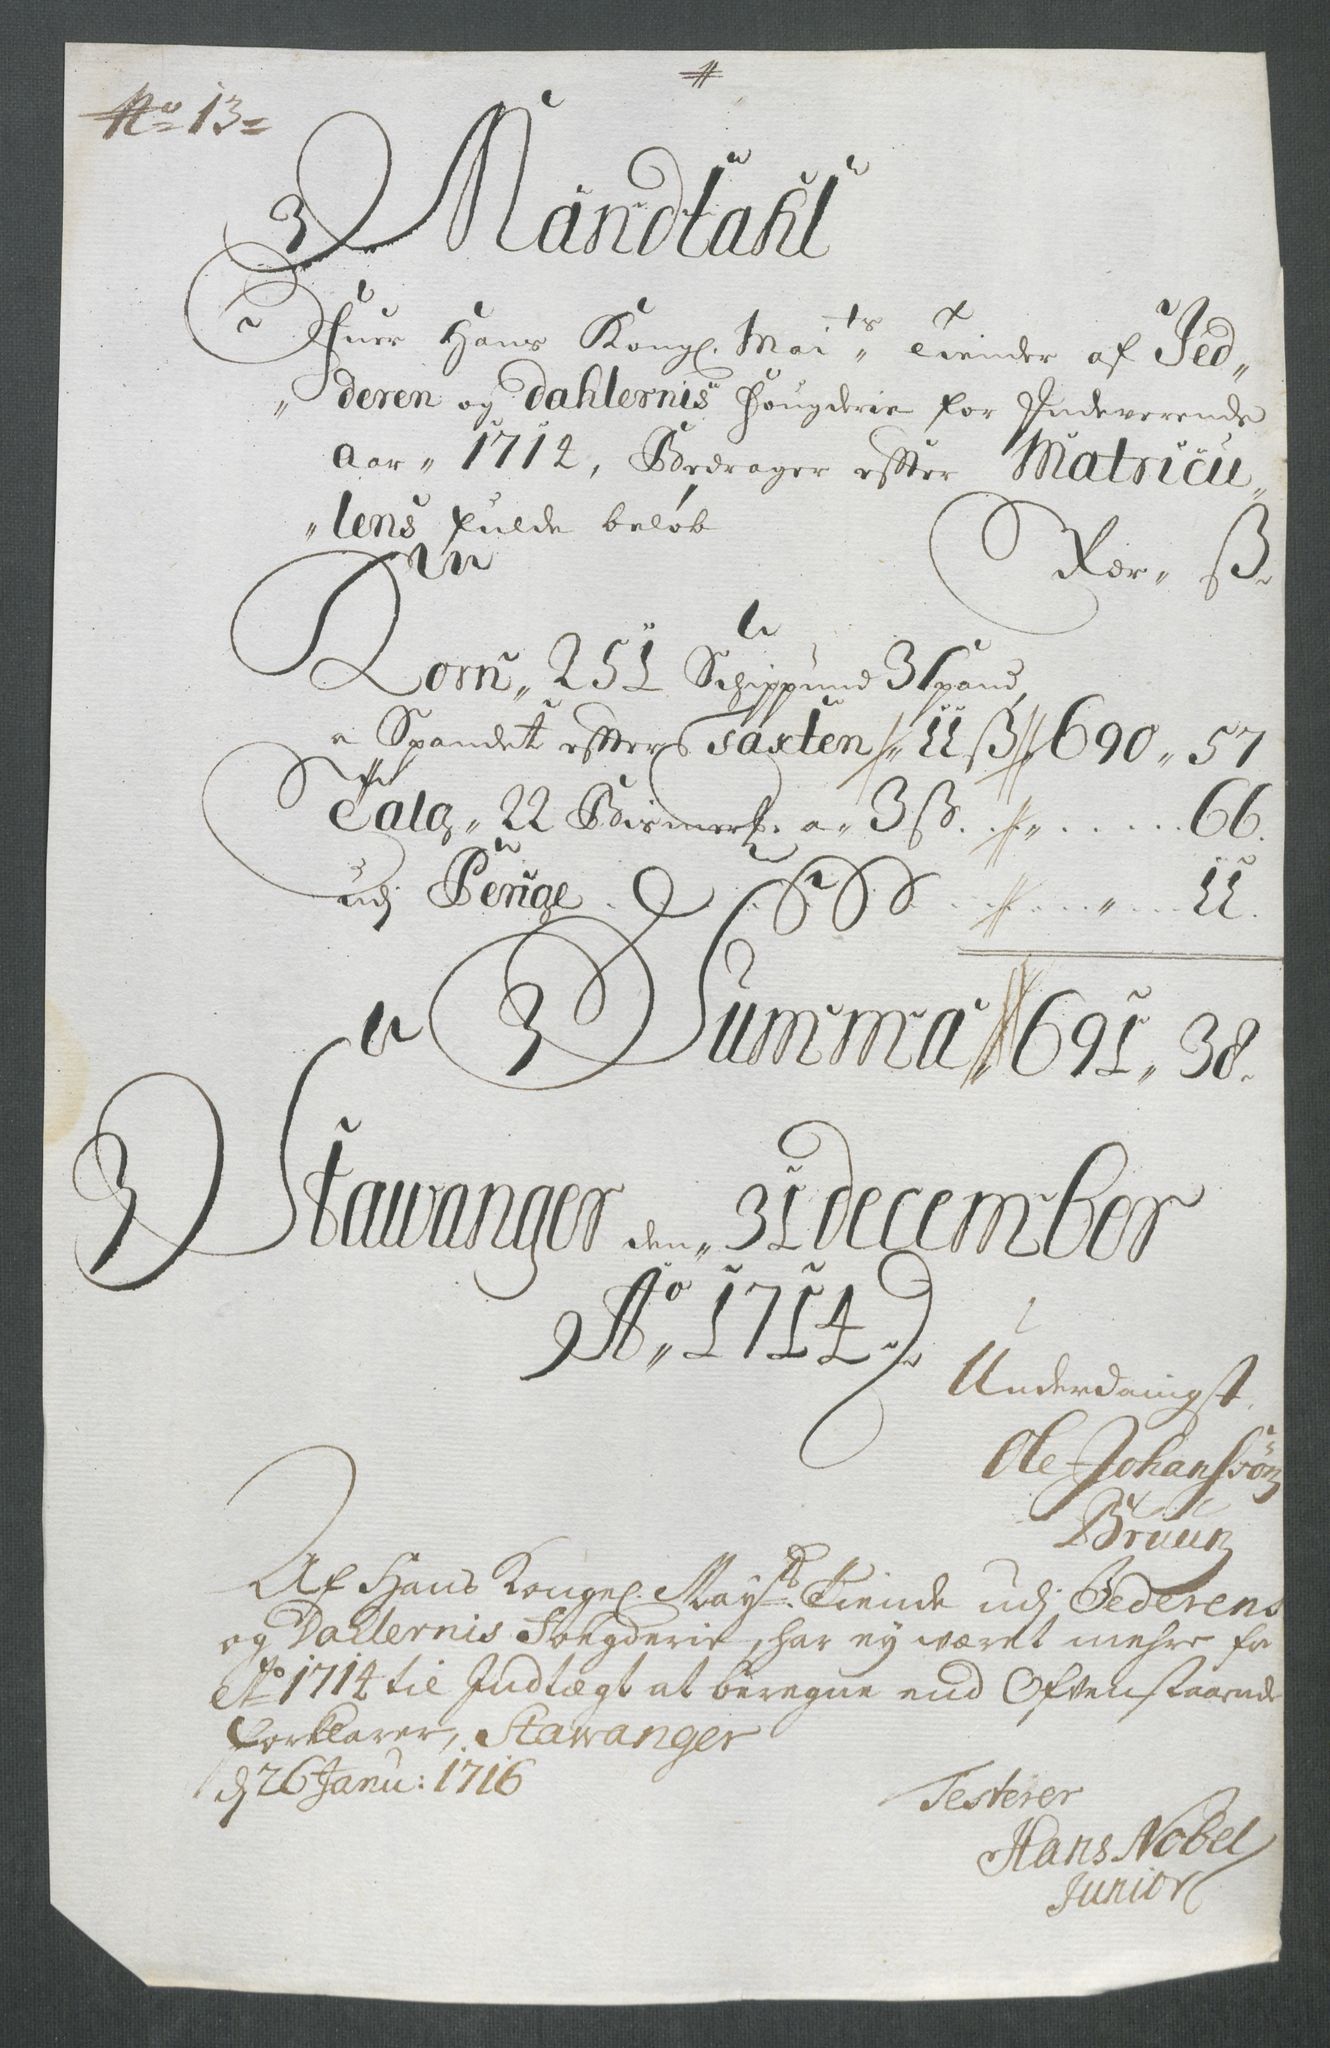 No 13
Mandtahl
Ofuer Hans Kongl. Maits Tiender af Jed
deren og Dahlernis Fougderie for Indeverende
Aar 1714, Bedrager effter Matricu
lens fulde beløb
Rdr ß
Korn 251 Schippund 3 Spand
a Spandet effter Taxten 11 ß 690 57
Talg 22 Bismerp. a 3 ß 66
udj Penge 11
Summa 691 38
Stawanger den 31 december
Ao 1714
Underdanigst
Ole Johanssøn
Bruun
Af Hans Kongel. Mayts. Tiende udj Jederens
og Dallernis Fougderie, har ey været mehre for
Ao 1714 til Indtægt at beregne end Ofvenstaaende
forklarer, Stawanger
d 26 Janu: 1716
Testerer
Hans Nobel
Junior